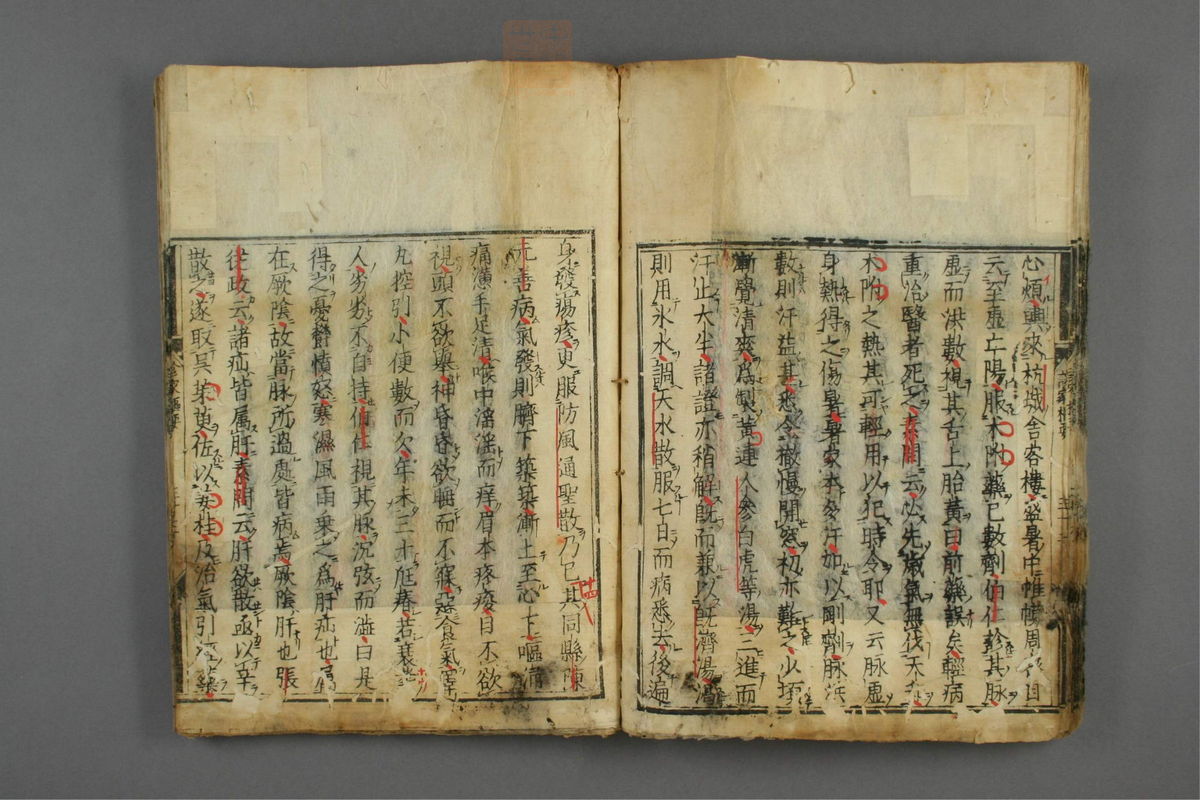 心煩輿來杭城舍客樓盛暑中帷幔周密自
云至虛亡陽服木附藥已數劑伯仁診其脉
虛而洪數視其舌上胎黃曰前藥誤矣輕病
重治醫者死之素問云必先歲氣無伐天和
木附之熱其可輕用以犯時令耶又云脉虛
身熱得之傷暑暑家本多汗加以剛劑脉洪
數則汗益甚悉令撤慢開窓初亦難之少頃
漸覺清爽爲製黃連人參白虎等湯三進而
汗止大半諸證亦稍解既而兼以既濟湯渴
則用氷水調天水散服七日而病悉去後遍
身發瘍疹更服防風通聖散乃已其同縣陳
元善病氣發則臍下築築漸上至心下嘔涌
痛懣手足清喉中淫淫而痒眉本疼痠目不欲
視頭不欲擧神昏昏欲睡而不寐惡食氣睾
丸控引小便數而欠年未三十尩瘠若衰
人劣劣不自持伯仁視其脉沉弦而澁曰是
得之憂欝憤怒寒濕風雨乘之爲肝疝也屬
在厥陰故當脉所過處皆病焉厥陰肝也張
從政云諸疝皆属肝素問云肝欲散亟以辛
散之遂取吳茱萸佐以姜桂及治氣引